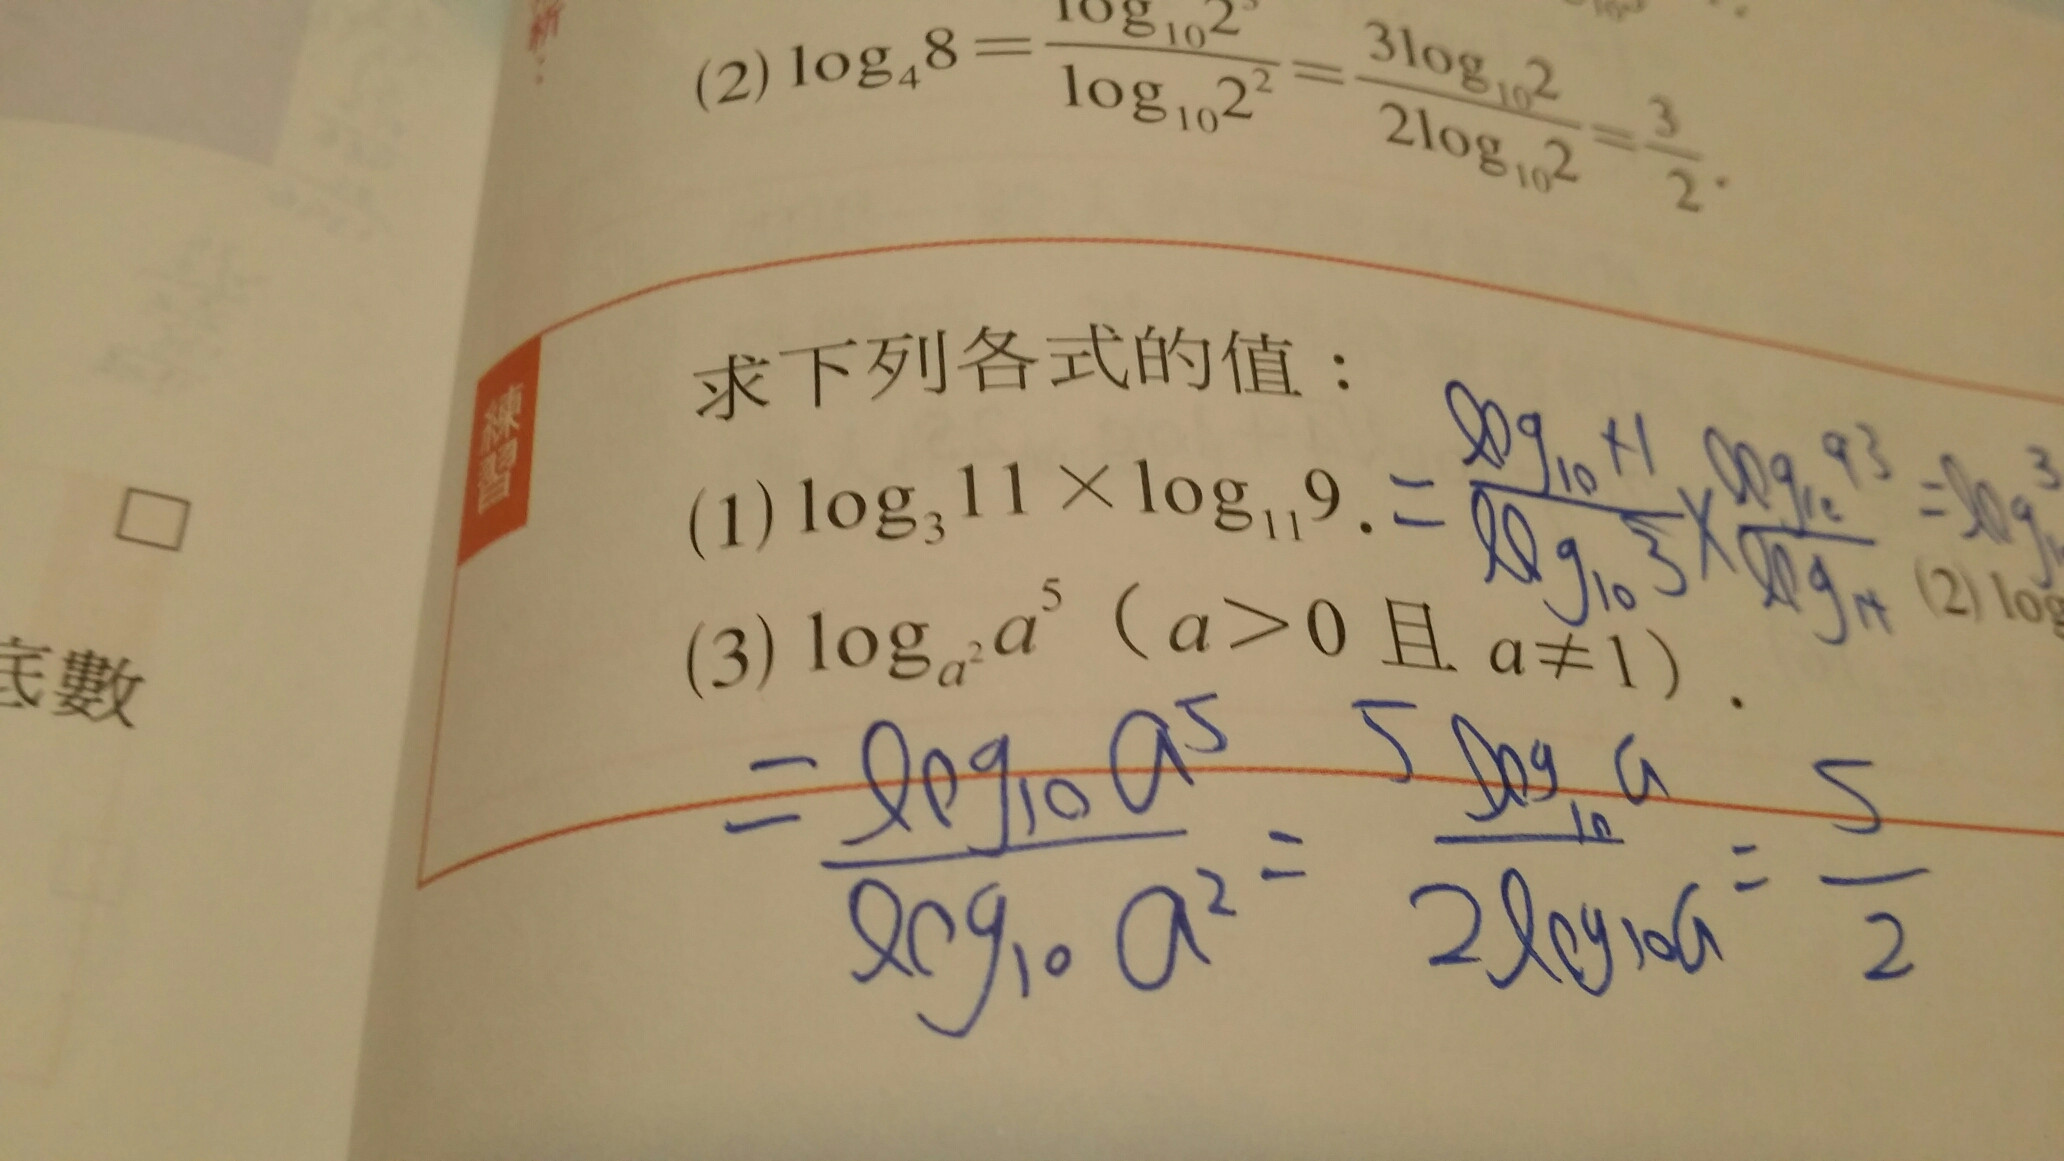 (2) log₄8 = log₁₀2³ / log₁₀2² = 3log₁₀2 / 2log₁₀2 = 3/2.
練習
求下列各式的值：
(1) log₃11 × log₁₁9. = log₁₀11 / log₁₀3 ×
(2) log
(3) logₐ²a⁵（a>0 且 a≠1）.
= log₁₀a⁵ / log₁₀a² = 5log₁₀a / 2log₁₀a = 5/2
底數